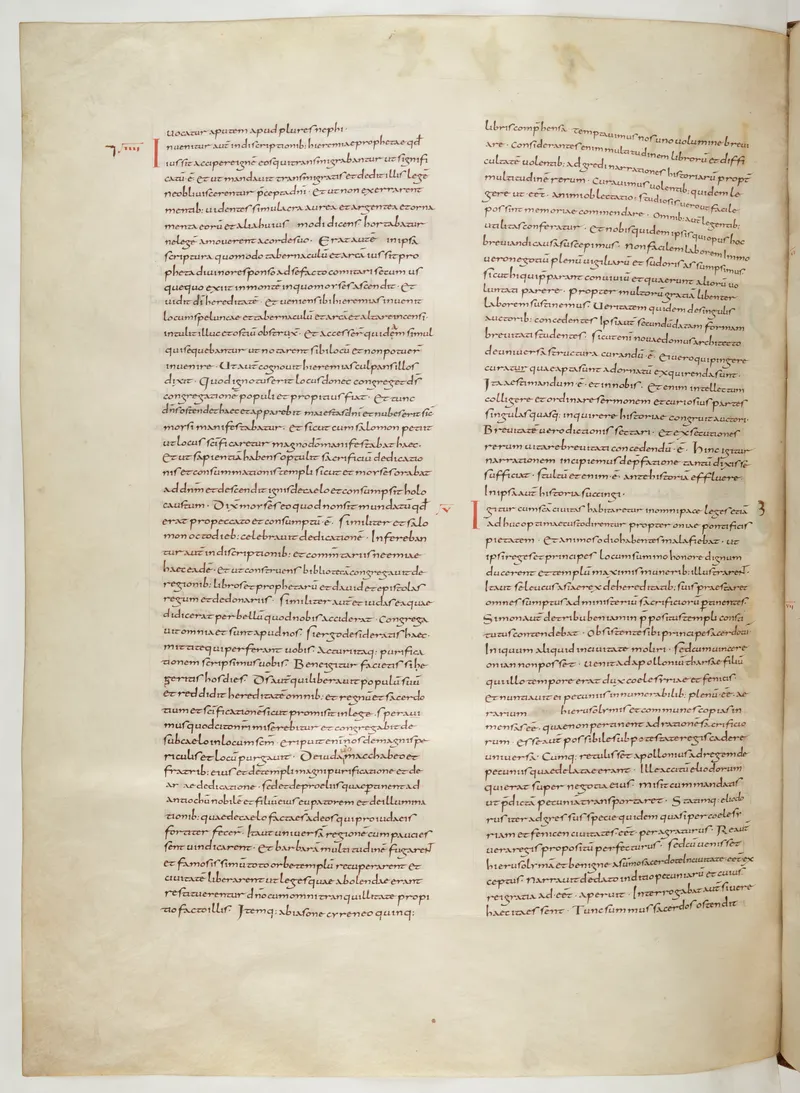 uocatur aputem apud plures nephi·
nuenitur aut̄ in discriptionib; hieremiae prophetae qđ
iussit accipere ignē eos qui transmigrabantur ut signifi
catū ē· et ut mandauit transmigratis et dedit illis legē
ne obliuiscerentur p̄cepta dn̄i· Et ut non exerrarent
mentib; uidentes simulacra aurea et argentea et orna
menta eorū et alia huius modi dicens hortabatur
ne legē amouerent a corde suo· Erat autē in ipsa
scriptura quomodo tabernaculū et arcā iussit pro
pheta diuino responso ad se facto comitari secum us
quequo exiit in montē in quo moyses ascendit· Et
uidit dī hereditatē· Et ueniens ibi hieremias inuenit
locum speluncae et tabernaculū et arcā et altare incensi
intulit illuc et ostiū obstrux̄· Et accesser̄ quidem simul
qui sequebantur ut notarent sibi locū et non potuer̄
inuenire· Ut aut̄ cognouit hieremias culpans illos
dixit· Quod ignotus erit locus donec congreget ds̄
congregationē populi et propitius fiat· Et tunc
dn̄s ostendet haec et apparebit maiestas dn̄i et nubes erit sic̄
moysi manifestabatur· Et sicut cum salomon petiit
ut locus sc̄ificaretur magno dō manifestabat haec·
Et ut sapientiā habens optulit sacrificiū dedicatio
nis et consummationis templi sicut et moyses orabat
ad dn̄m et descendit ignis de caelo et consumpsit holo
caustum· Dixit moyses eo quod non sit manducatū qđ
erat pro peccato et consumptū ē· Similiter et salo
mon octo dieb; celebrauit dedicationē· Infereban
tur aut̄ in discriptionib; et commentariis neemiae
haec eadē· Et ut construens bibliotecā congregauit de
regionib; libros et prophetarū et dauid et epistolas
regum et de donariis· Similiter aut̄ et iudas ea quae
didicerat per bellū quod nobis acciderat· Congrega
uit omnia et sunt apud nos· Si ergo desideratis haec·
mittite qui perferant uobis· Acturi itaq; purifica
tionem scripsimus uobis· Bene igitur facietis si he
geritis hos dies· Ds̄ aut̄ qui liberauit populū suū
et reddidit hereditatē omnib; et regnū et sacerdo
tium et sc̄ificationē sicut promisit in lege· Spera ui
mus quod cito nr̄i miserebitur et congregabit de
sub caelo in locum sc̄m· Eripuit enī nos de magnis pe
riculis et locū purgauit· De iuda macchabeo et
fratrib; eius et de templi magni purificatione et de
ar ae dedicatione· Sed et de proeliis quae pertinent ad
antiochū nobilē et filiū eius eupatorem et de illumina
tionib; quae de caelo factae sunt ad eos qui pro iudaeis
fortiter fecer̄· Ita ut uniuersā regionē cum pauci es
sent uindicarent· Et barbarā multitudinē fugarent
et famosissimū toto orbe templū recuperarent et
ciuitatē liberarent ut leges quae abolendae erant
restituerentur dn̄o cum omni tranquillitate propi
tio facto illis· Itemq; ab iasone cyreneo quinq;
libris comp̄hensa temptauimus nos uno uolumine breui
are· Considerantes enim multitudinem librorū et diffi
cultatē uolentib; adgredi narrationes historiarū propt̄
multitudinē rerum· Curauimus uolentib; quidem le
gere ut eēt· animo blectatio· studiosis uero ut facile
possint memoriae commendare· Omnib; aut̄ legentib;
utilitas conferatur· Et nobis quidem ipsis qui opus hoc
breuiandi causa suscepimus· non facilem laborem Immo
uero negotiū plenū uigiliarū et sudoris assumpsimus
sicut hi qui p̄parant conuiuiū et quaerunt aliorū uo
luntati parere propter multorū gratiā libenter
laborem sustinemus· Ueritatem quidem de singulis
auctorib; concedentes Ipsi aut̄ secundū datam formam
breuitati studentes· Sicut enī nouae domus architecto
de uniuersa structura curandū ē· Ei uero qui pingere
curatur quae apta sunt ad ornatū exquirenda sunt·
Ita aestimandum ē· et in nobis· Et enim intellectum
colligere et ordinare sermonem et curiosius partes
singulas quasq; inquirere historiae congruit auctori·
Breuitatē uero dictionis sectari· Et ex secutiones
rerum uitare breuiati concedendū ē· Hinc igitur
narrationem incipiemus de p̄fatione tantū dixisse
sufficiat· Stultū etenim ē· ante historiā effluere
In ipsa aut̄ historia succingi·
gitur cum sc̄a ciuitas habitaretur in omni pace leges etiā
adhuc optimae custodirentur propter oniae pontificis
pietatem· Et animos odio habentes mala fiebat· ut
ipsi reges et principes locum summo honore dignum
ducerent et templū maximis munerib; illustrarent·
Ita ut seleucus asiae rex de hereditatib; suis praestaret
omnes sumptus ad ministeriū sacrificiorū p̄tinentes·
Simon aut̄ de tribu beniamin p̄positus templi consti
tutus contendebat· Obsistente sibi principe sacerdotū
Iniquum aliquid in ciuitate moliri· Sed cum uincere
onian non posset· uenit ad apolloniū tharsae filiū
qui illo tempore erat dux coelesyriae et fenicis
et nuntiauit ei pecuniis innumerabilib; plenū eē ae
rarium hierusolymis et communes copias in
mensas eē· quae non pertinent ad rationē sacrificio
rum· Esse aut̄ possibile sub potestate regis cadere
uniuersa· Cumq; retulisset apollonius ad regem de
pecuniis quae delatae erant· Ille accitū eliodorum
qui erat super negotia eius· misit cum mandatis
ut p̄dictā pecuniā transportaret· Statimq; eliodo
rus iter adgressus specie quidem quasi per coelesy
riam et fenicen ciuitates eēt· peragraturus· Re aut̄
uera regis propositū perfecturus· Sed cū uenisset
hierusolyma et benigne a summo sacerdote In ciuitate eēt ex
ceptus· Narrauit de dato indicio pecuniarū et cuius
rei gratia adeēt· aperuit· Interrogabat aut̄ si uere
haec ita essent· Tunc summus sacerdos ostendit